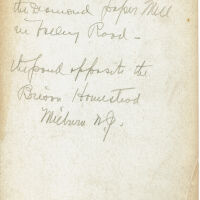 the Diamond paper Mill
in Valley Road -
the pond opposite the
Brison Homestead
Milburn N.J.